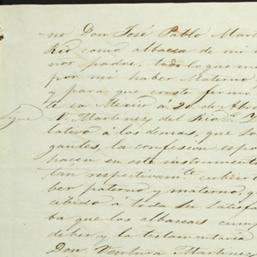 no Don José Pablo Mart
Rio como albacea de mi
nor padre, todo lo que me
por mi haber Materno
y para que conste firmo
te en Mexico á 20 de Abri
V. Martinez del Rio
lativo á los demas, que so
gantes, la confesion espe
hacen en este instrumento
tan respectivamte
ber paterno y materno, q
á toda su satisfa
ba que los albaceas cum
deber y la testamentaria
Don Ventura Martinez